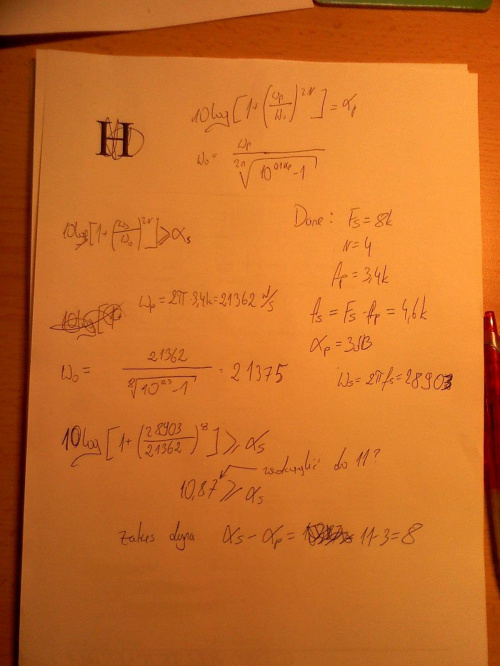 10log[1+(ωp/ω₀)^2N] = αp
H
ω₀ = ωp / ^2n√(10^0,1αp -1)
10log[1+(ωs/ω₀)^2N] ⩾ αs
Dane: Fs = 8k
N = 4
Ap = 3,4k
As = Fs - Ap = 4,6k
αp = 3dB
ωs = 2πfs = 28903
ωp = 2π·3,4k = 21362 r/s
10log[
ω₀ = 21362 / ^8√(10^0,3 -1) = 21375
10log[1+(28903/21362)^8] ⩾ αs
zaokrąglić do 11?
10,87 ⩾ αs
αs - αp = 11-3=8